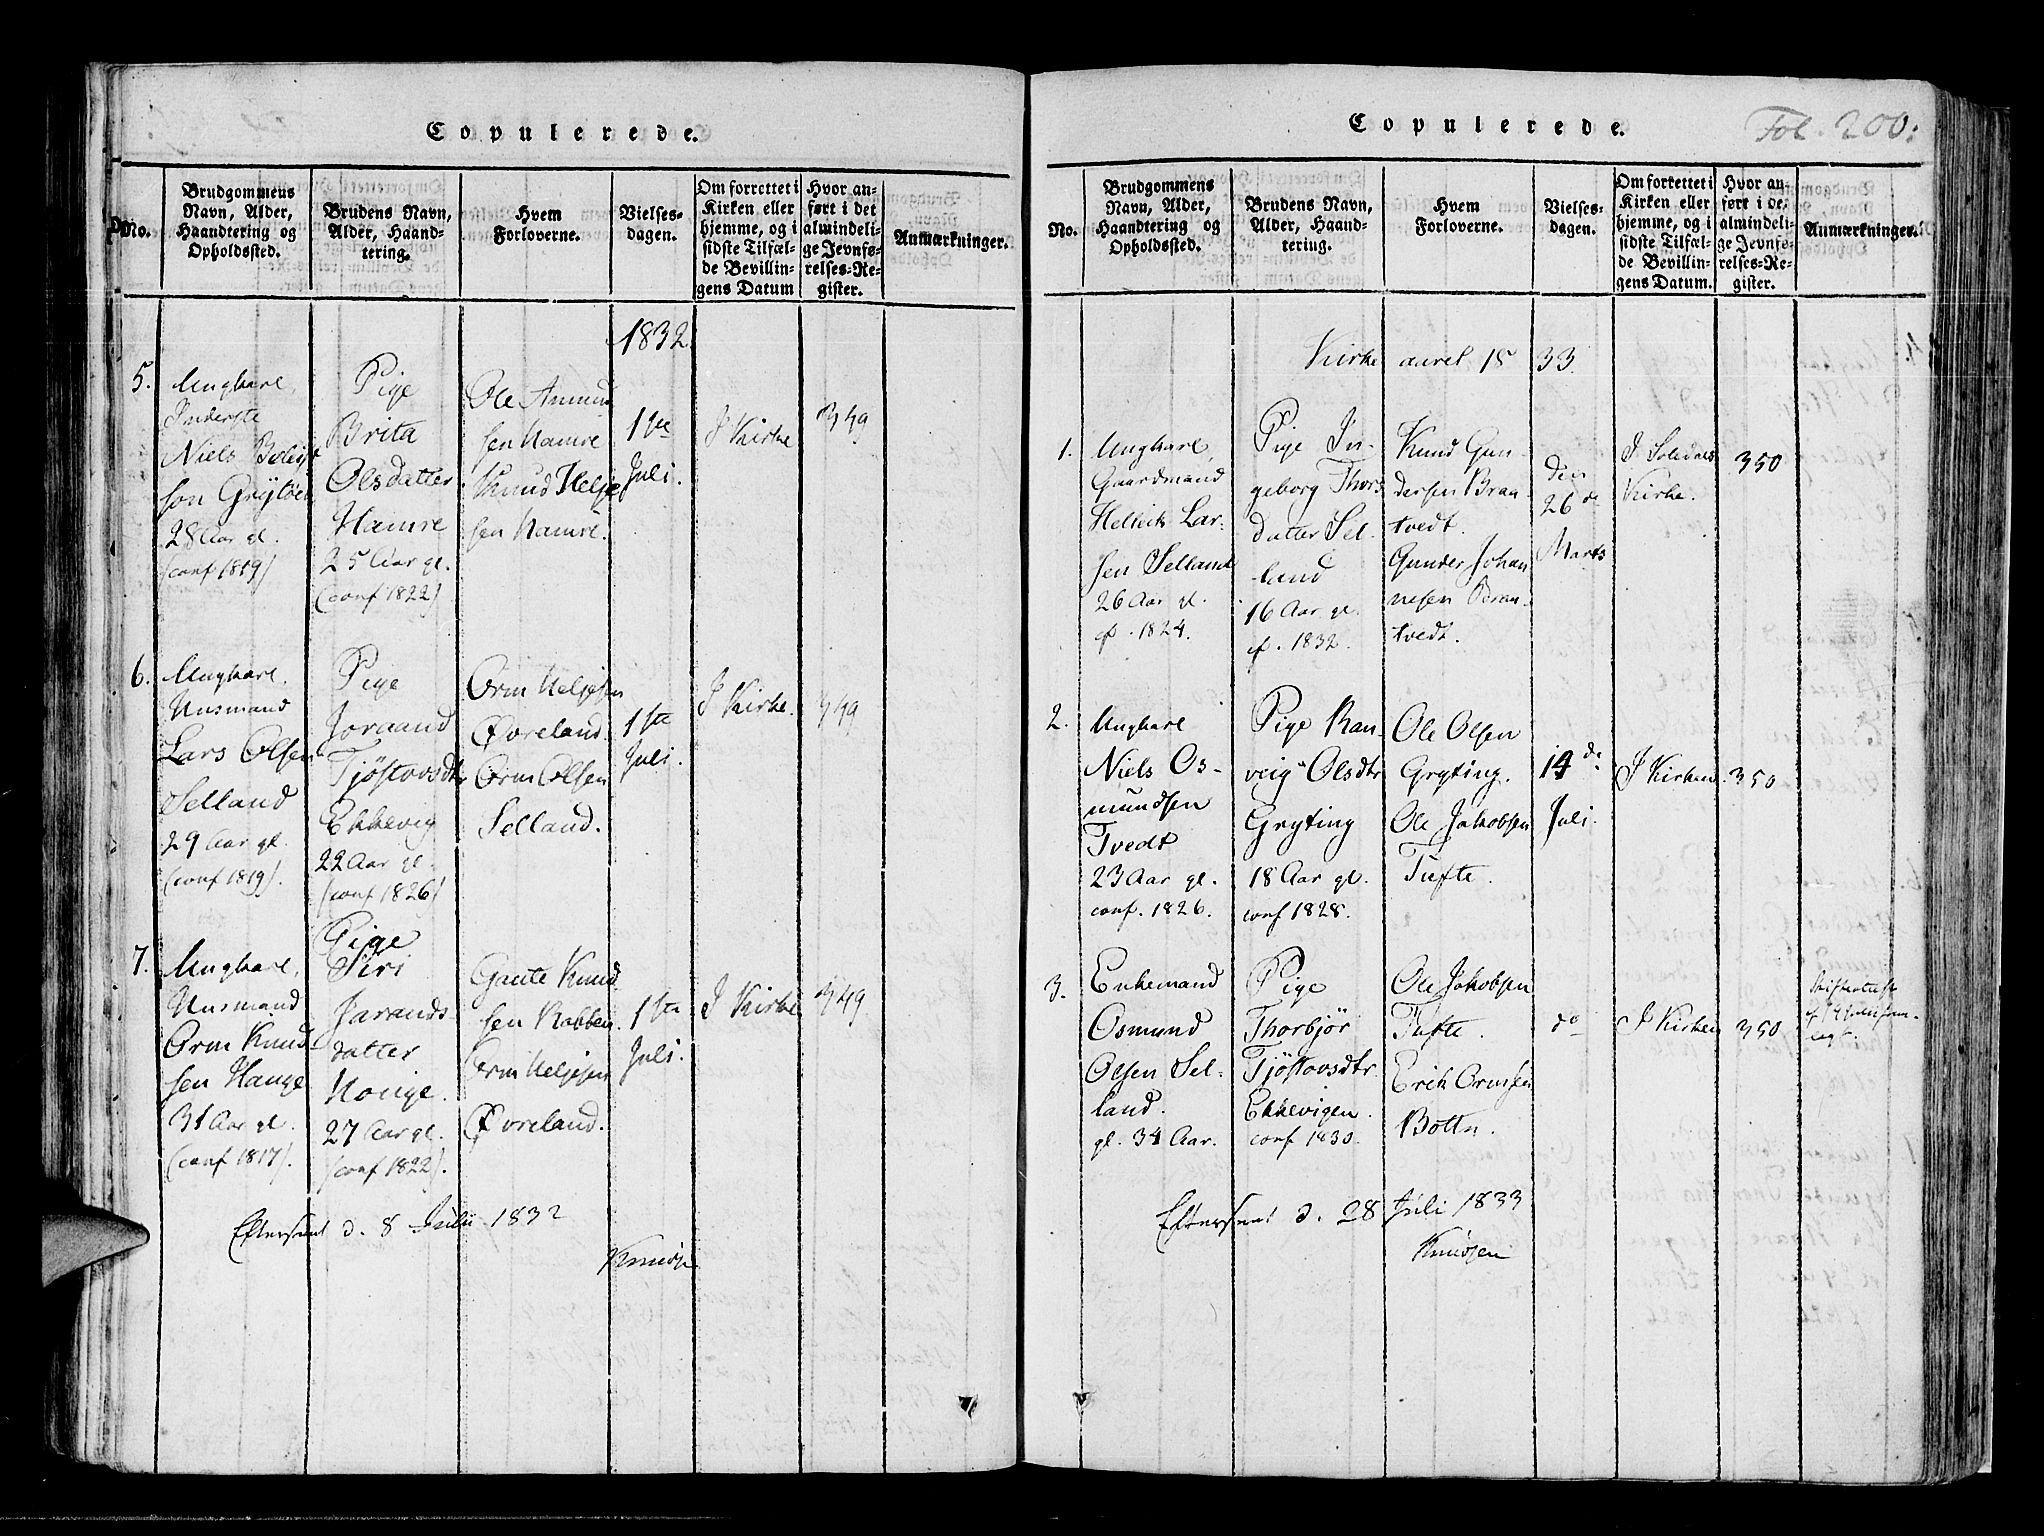 Copulerede.
No.
Brudgommens
Navn, Alder,
Haandtering og
Opholdssted.
Brudens Navn,
Alder, Haand-
tering.
Hvem
Forloverne.
Vielses-
dagen.
Om forrettet i
Kirken eller
hjemme, og i
sidste Tilfæl-
de Bevillin-
gens Datum
Hvor an-
ført i det
almindeli-
ge Jevnfø-
relses-Re-
gister.
Anmærkninger.
1832
5.
Ungkarl,
Inderste
Niels
søn
28 Aar gl.
(conf 1819)
Pige
Brita
Olsdatter
Hamre
25 Aar gl.
(conf 1822)
Ole Anmund
sen Hamre
Knud Helje
sen Hamre.
1ste
Juli.
I Kirke
349
6.
Ungkarl.
Husmand
Lars Olsen
Selland
29 Aar gl.
(conf 1819).
Pige
Joraand
Tjøstovsdtr
Ekkevig
22 Aar gl.
(conf 1826)
Orm Heljesen
Øvreland.
Orm Olsen
Selland.
1ste
Juli.
I Kirke.
349
7.
Ungkarl,
Husmand
Orm Knud
sen Hauge
31 Aar gl.
(conf 1817).
Pige
Siri
Jarands-
datter
Houge.
27 Aar gl.
(conf 1822).
Gaute Knud
sen Robben.
Orm Heljesen
Øvreland.
1ste
Juli.
I Kirke
349
Efterseet d. 8 Julii 1832
Copulerede.
Fol. 200.
No.
Brudgommens
Navn, Alder,
Haandtering og
Opholdssted.
Brudens Navn,
Alder, Haand-
tering.
Hvem
Forloverne.
Vielses-
dagen.
Om forrettet i
Kirken eller
hjemme, og i
sidste Tilfæl-
de Bevillin-
gens Datum.
Hvor an
ført i de
almindeli-
ge Jevnfø-
relses-Re-
gister.
Anmærkninger.
Kirke aaret 18 33.
1.
Ungkarl,
Gaardmand
Hellek Lar-
sen Selland
26 Aar gl.
cf. 1824.
Pige In-
geborg Thors
datter Sel-
land
16 Aar gl.
cf. 1832.
Knud Gun-
dersen Bran-
tvedt.
Gunder Johan
nesen Bran-
tvedt.
den
26de
Marts
Kirke.
350
2.
Ungkarl
Niels Os-
mundsen
Tvedt
23 Aar gl.
conf. 1826.
Pige Ran-
veig Olsdtr
Gryting
18 Aar gl.
conf 1828.
Ole Olsen
Gryting.
Ole Jakobsen
Tufte.
14de
Juli.
I Kirken.
350
3.
Enkemand
Osmund
Olsen Sel-
land.
gl. 34 Aar.
Pige
Thorbjør
Tjøstovsdtr
Ekkevigen.
conf 1830.
Ole Jakobsen
Tufte.
Erik Ormsen
Bottn.
do
I Kirken
350
Efterseet d. 28 Juli 1833
Knudsen